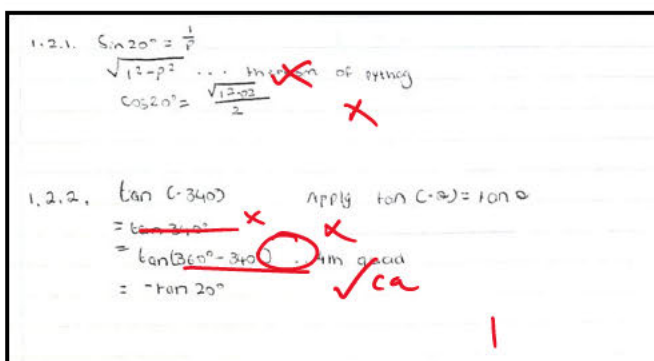 1.2.1. Sin20° = 1/P
√1²-P² ... theorem of pythag
Cos20° = √1²-P²/2
1.2.2. tan (-340) Apply tan (-θ) = tan θ
= tan 340°
= tan(360° - 340) .. 4th quad
= -tan 20° ca
1